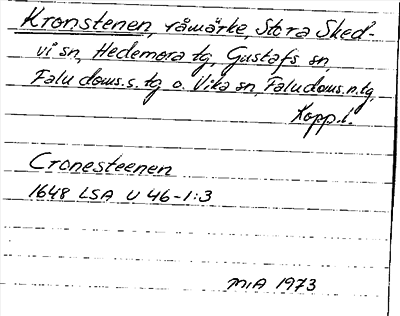 Kronstenen, råmärke, Stora Sked-
vi sn, Hedemora tg, Gustafs sn,
Falu doms.s. tg o. Vika sn, Faludoms.n.tg,
Kopp.l.
Cronesteenen
1648 LSA U 46-1:3
MIA 1973